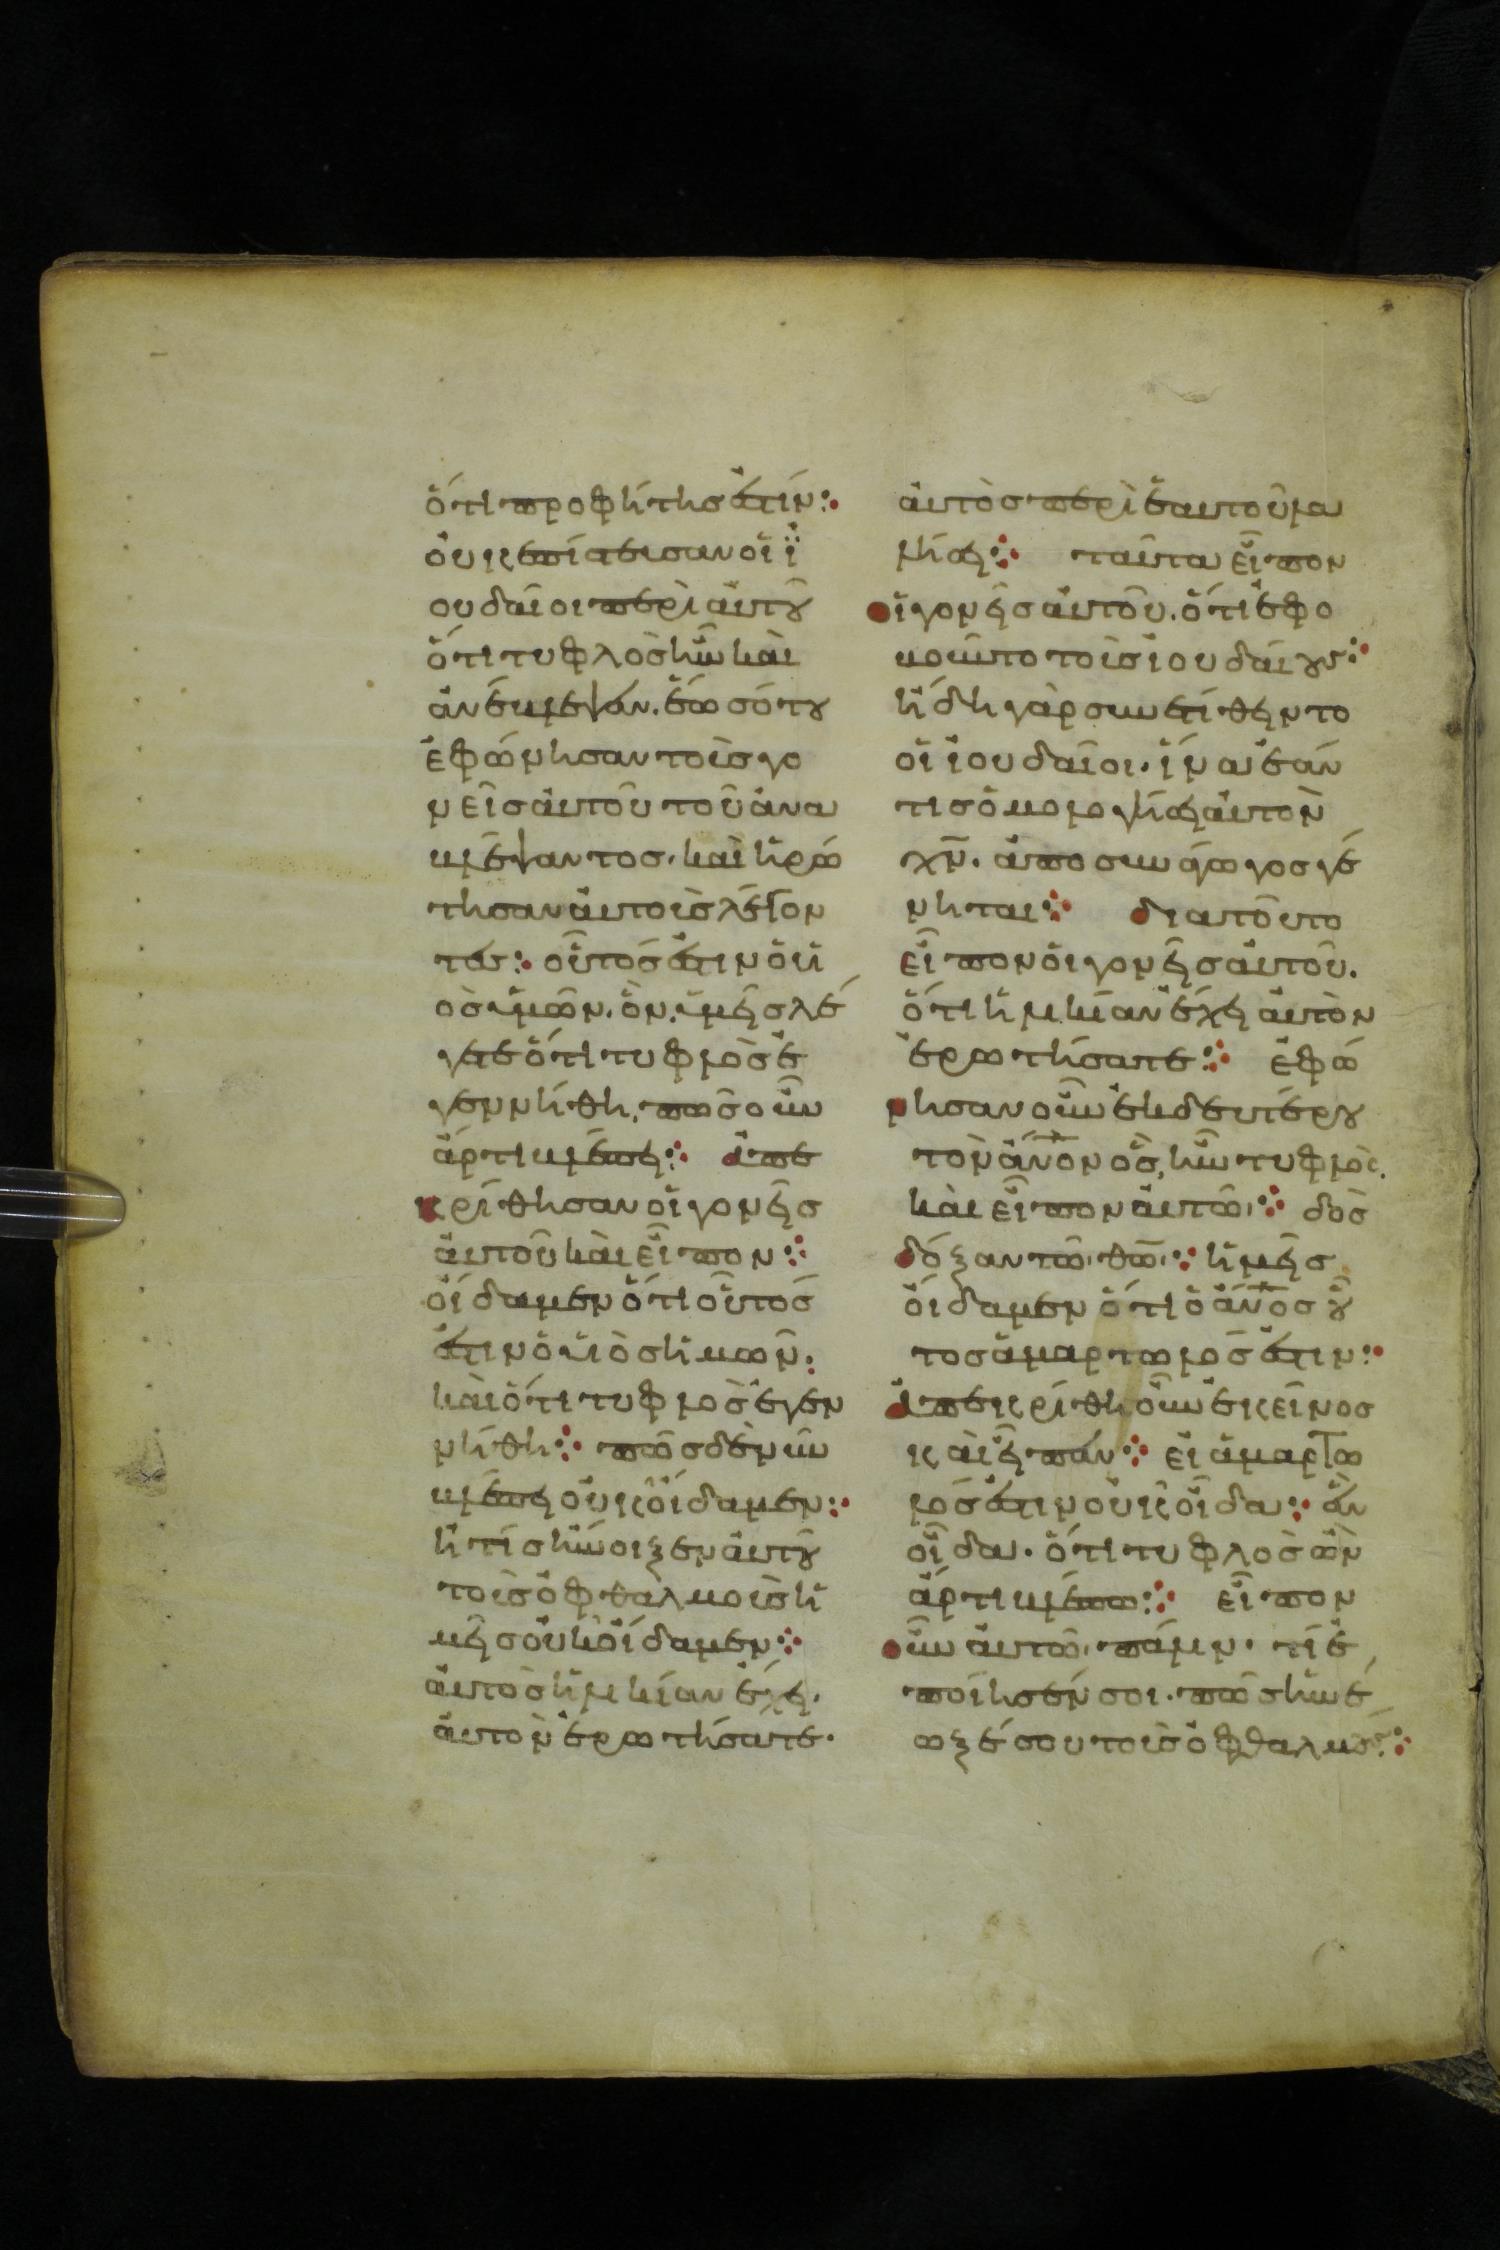 ὅτι προφήτησ ἐστίν:
οὐκ ἐπίστευσαν οἱ ϊ
ουδαῖοι περὶ αὐτοῦ
ὅτι τυφλὸσ ἦν καὶ
ἀνέβλεψεν. ἕωσ ὅτου
ἐφώνησαν τοὺσ γο
νεῖσ αὐτοῦ τοῦ ἀνα
βλέψαντοσ. καὶ ἠρώ
τησαν αὐτοὺσ λέγον
τεσ: οὗτόσ ἐστιν ὁ υἱ
ὸσ ὑμῶν. ὃν ὑμεῖσ λέ
γετε ὅτι τυφλὸσ ἐ
γεννήθη. πῶσ οὖν
ἄρτι βλέπει: ἀπε
κρίθησαν οἱ γονεῖσ
αὐτοῦ καὶ εἶπον:
οἴδαμεν ὅτι οὗτόσ
ἐστιν ὁ υἱὸσ ἡμῶν:
καὶ ὅτι τυφλὸσ ἐγεν
νήθη: πῶσ δὲ νῦν
βλέπει οὐκ οἴδαμεν:
ἢ τίσ ἤνοιξεν αὐτοῦ
τοὺσ ὀφθαλμοὺσ ἡ
μεῖσ οὐκ οἴδαμεν:
αὐτὸσ ἡλικίαν ἔχει.
αὐτὸν ἐρωτήσατε.
αὐτὸσ περὶ ἑαυτοῦ λα
λήσει: ταῦτα εἶπον
οἱ γονεῖσ αὐτοῦ. ὅτι ἐφο
βοῦντο τοὺσ ἰουδαίουσ:
ἤδη γὰρ συνετέθειντο
οἱ ἰουδαῖοι. ἵνα ἐάν
τισ ὁμολογήσει αὐτὸν
χν̄. ἀποσυνάγωγοσ γέ
νηται: διατοῦτο
εἶπον οἱ γονεῖσ αὐτοῦ.
ὅτι ἡλικίαν ἔχει αὐτὸν
ἐρωτήσατε: ἐφώ
νησαν οὖν ἐκ δευτέρου
τὸν ἄν̄ον ὃσ ἦν τυφλὸσ.
καὶ εἶπον αὐτῶ: δὸσ
δόξαν τῶ θω̄: ἡμεῖσ
οἴδαμεν ὅτι ὁ ἄν̄οσ οὗ
τοσ ἁμαρτωλόσ ἐστιν:
ἀπεκρίθη οὖν ἐκεῖνοσ
καὶ εἶπεν: εἰ ἁμαρτω
λόσ ἐστιν οὐκ οἶδα: ἓν
οἶδα. ὅτι τυφλὸσ ὢν
ἄρτι βλέπω: εἶπον
οὖν αὐτῶ πάλιν. τί ἐ
ποίησέν σοι. πῶσ ἤνέ
ωξέ σου τοὺσ ὀφθαλμούσ: